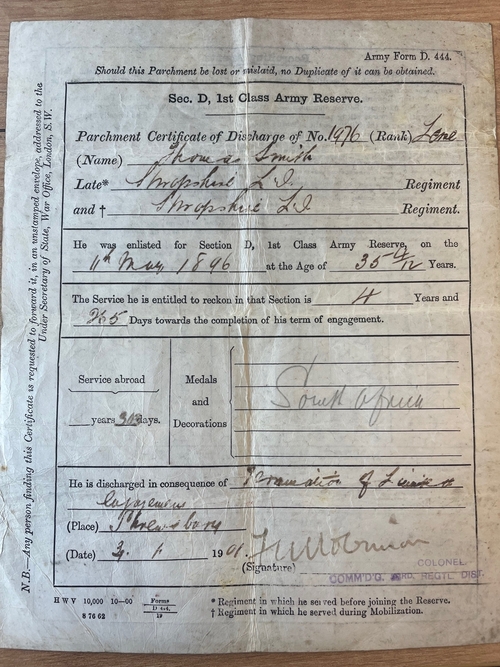 Army Form D. 444.
Should this Parchment be lost or mislaid, no Duplicate of it can be obtained.
Sec. D, 1st Class Army Reserve.
Parchment Certificate of Discharge of No. 1976 (Rank)
(Name) Thomas Smith
Late* Shropshire L.I. Regiment
and † Shropshire L.I Regiment.
He was enlisted for Section D, 1st Class Army Reserve, on the
11th May 1896 at the Age of 35 Years.
The Service he is entitled to reckon in that Section is 4 Years and
Days towards the completion of his term of engagement.
Service abroad
years days.
Medals
and
Decorations
South Africa
He is discharged in consequence of Termination of
engagement
(Place) Shrewsbury
(Date) 1901.
(Signature)
COLONEL.
COMM'D'G. REGTL DIST.
H W V 10,000 10—00 Forms
D 444.
19
8 76 62
* Regiment in which he served before joining the Reserve.
† Regiment in which he served during Mobilization.
N.B.—Any person finding this Certificate is requested to forward it, in an unstamped envelope, addressed to the
Under Secretary of State, War Office, London, S.W.